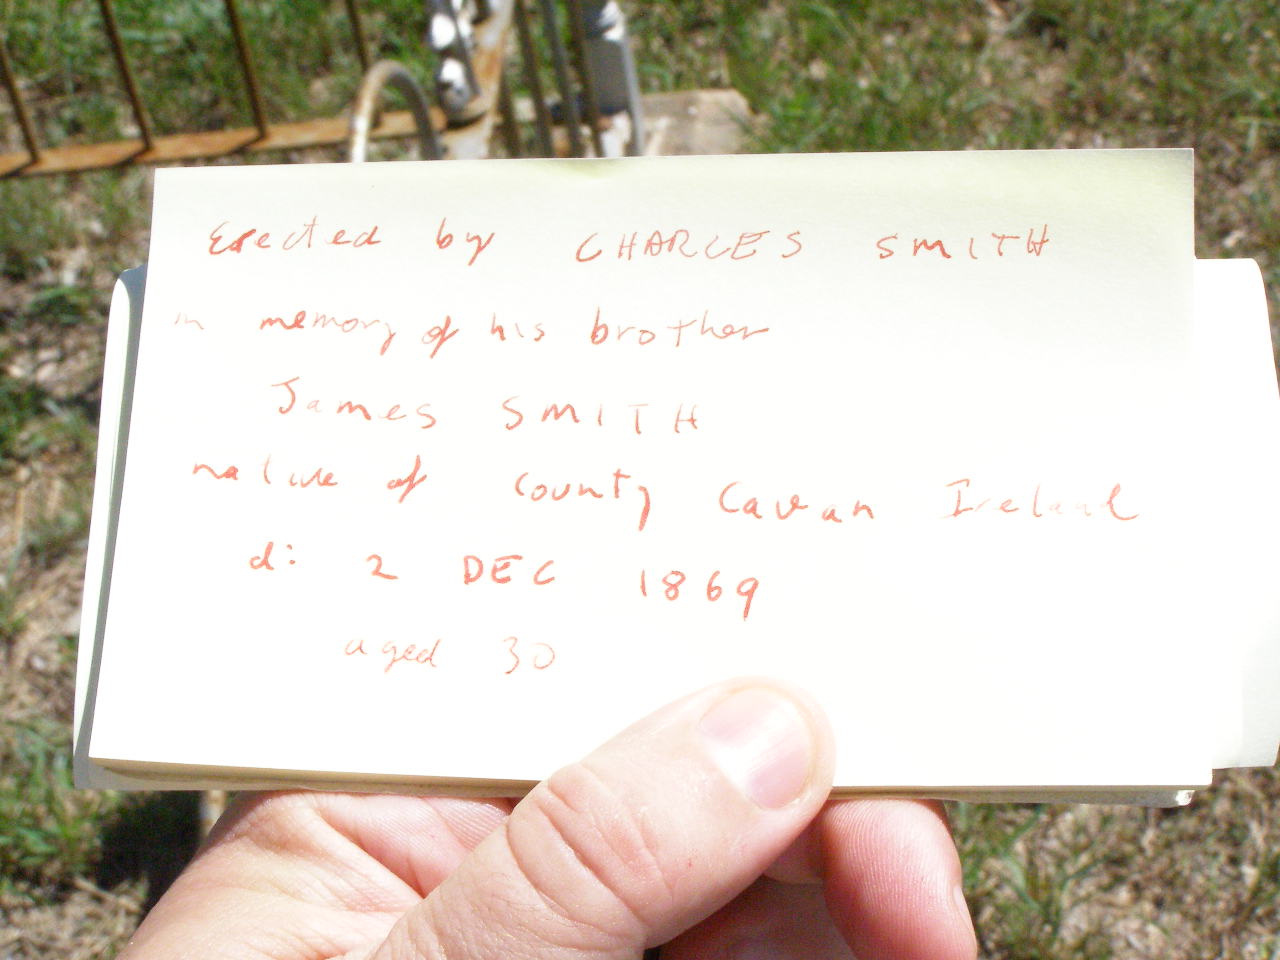 Erected by CHARLES SMITH
in memory of his brother
James SMITH
native of County Cavan Ireland
d: 2 DEC 1869
aged 30